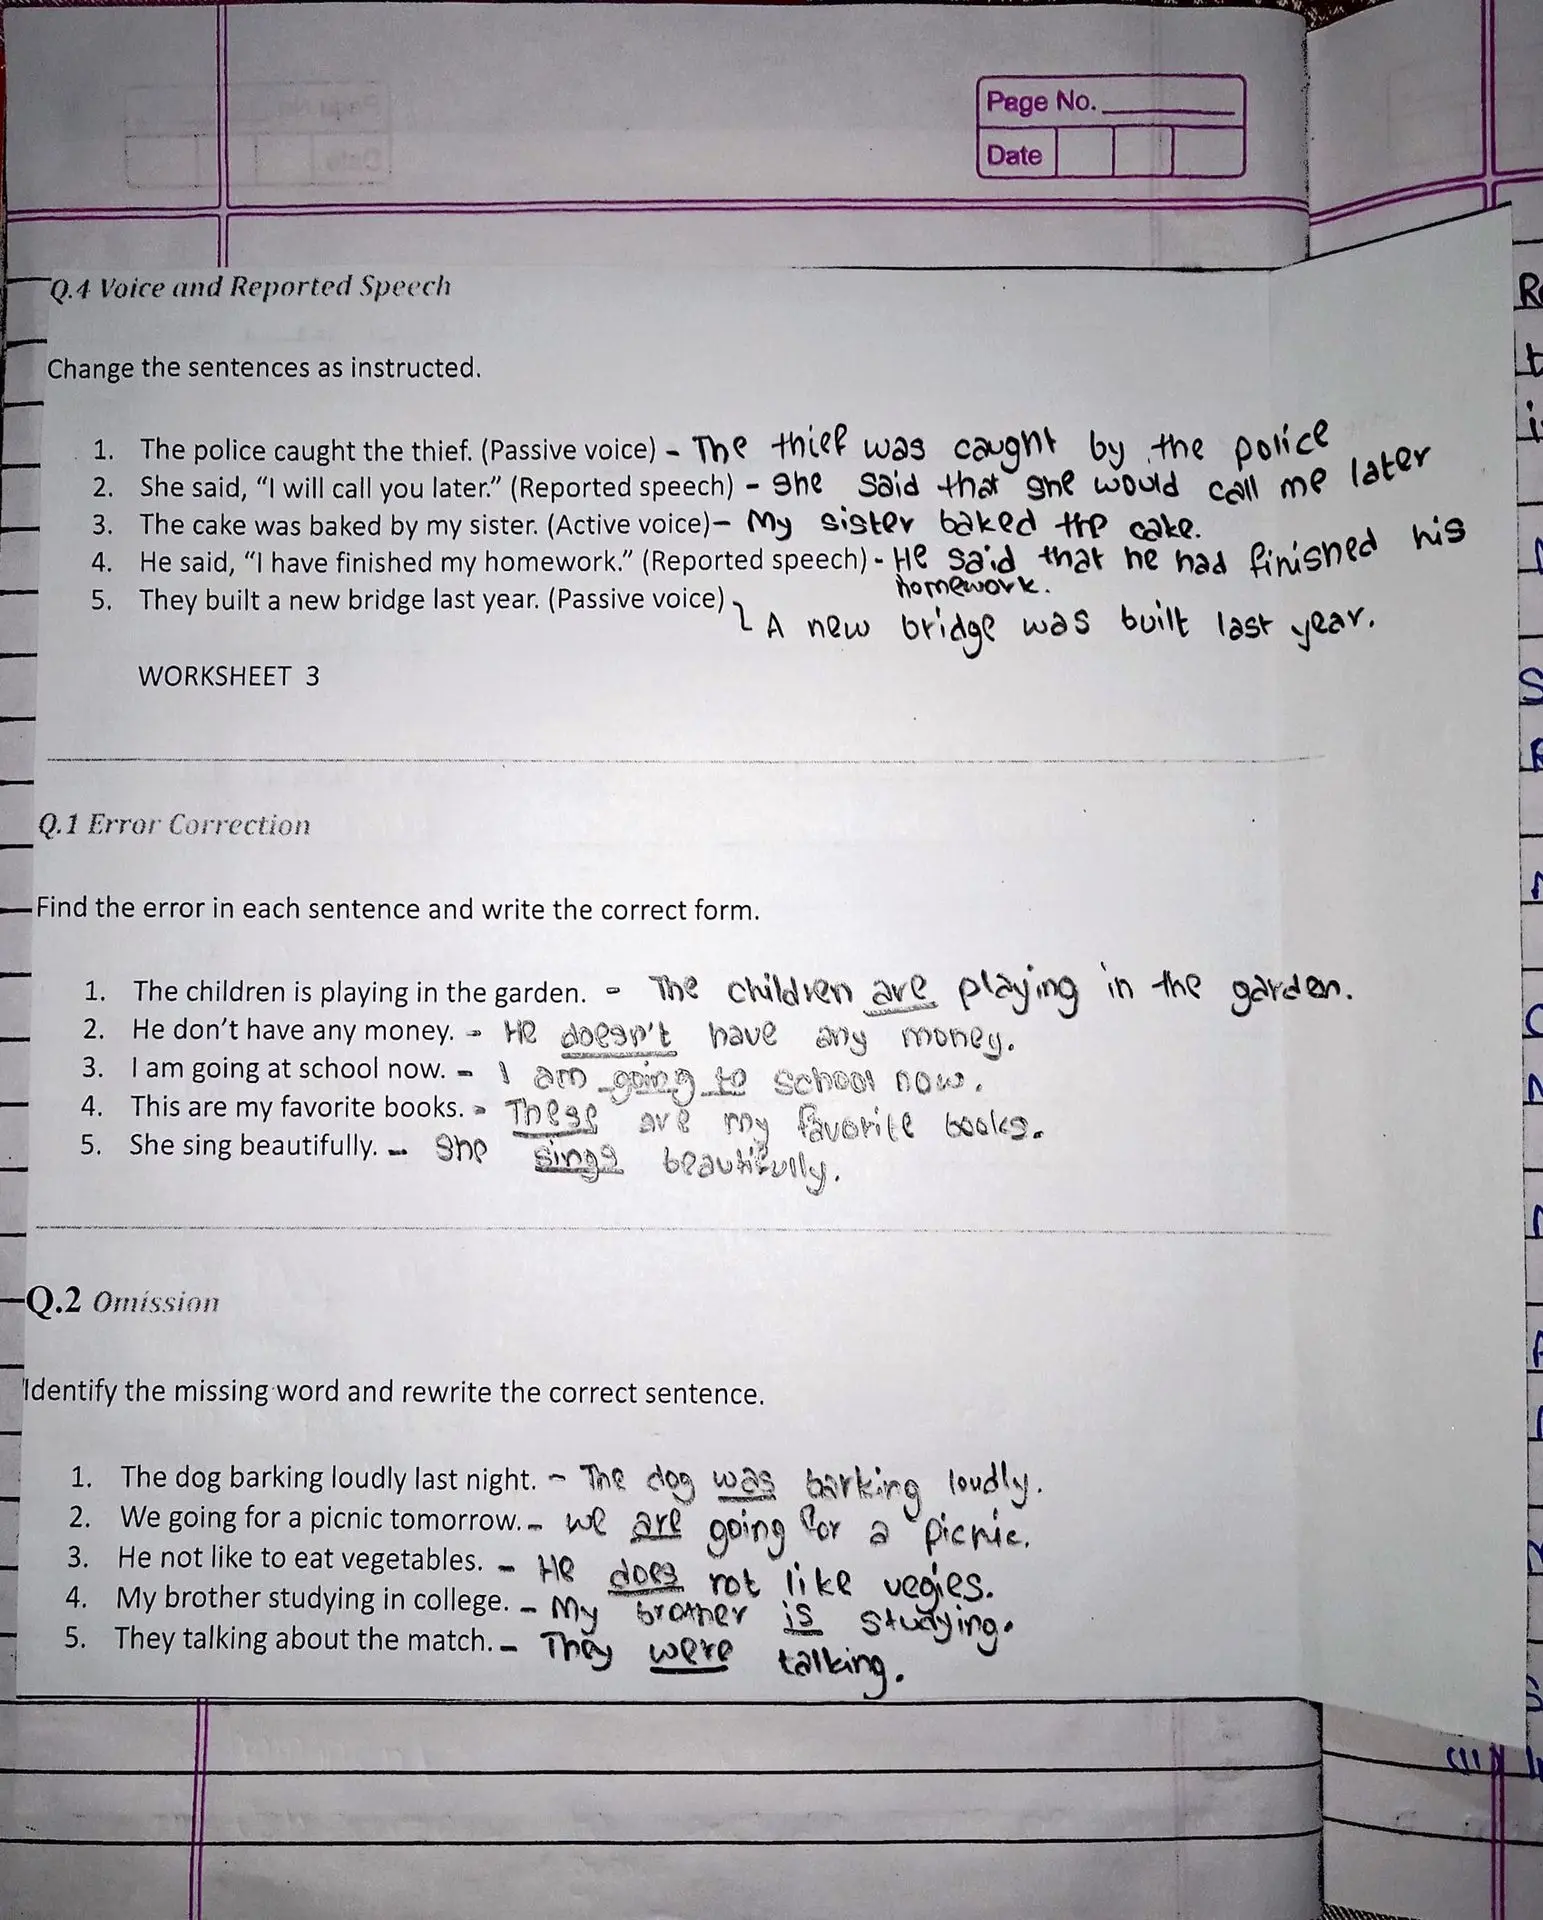 Page No.
Date
Q.4 Voice and Reported Speech
Change the sentences as instructed.
1. The police caught the thief. (Passive voice) - The thief was caught by the police
2. She said, “I will call you later.” (Reported speech) - She said that she would call me later
3. The cake was baked by my sister. (Active voice)- My sister baked the cake.
4. He said, “I have finished my homework.” (Reported speech) - He said that he had finished his
homework.
5. They built a new bridge last year. (Passive voice)
A new bridge was built last year.
WORKSHEET 3
Q.1 Error Correction
Find the error in each sentence and write the correct form.
1. The children is playing in the garden. - The children are playing in the garden.
2. He don’t have any money. - He doesn't have any money.
3. I am going at school now. - I am going to school now.
4. This are my favorite books. - These are my favorite books.
5. She sing beautifully. - She sings beautifully.
Q.2 Omission
Identify the missing word and rewrite the correct sentence.
1. The dog barking loudly last night. - The dog was barking loudly.
2. We going for a picnic tomorrow. - we are going for a picnic.
3. He not like to eat vegetables. - He does not like vegies.
4. My brother studying in college. - My brother is studying.
5. They talking about the match. - They were talking.